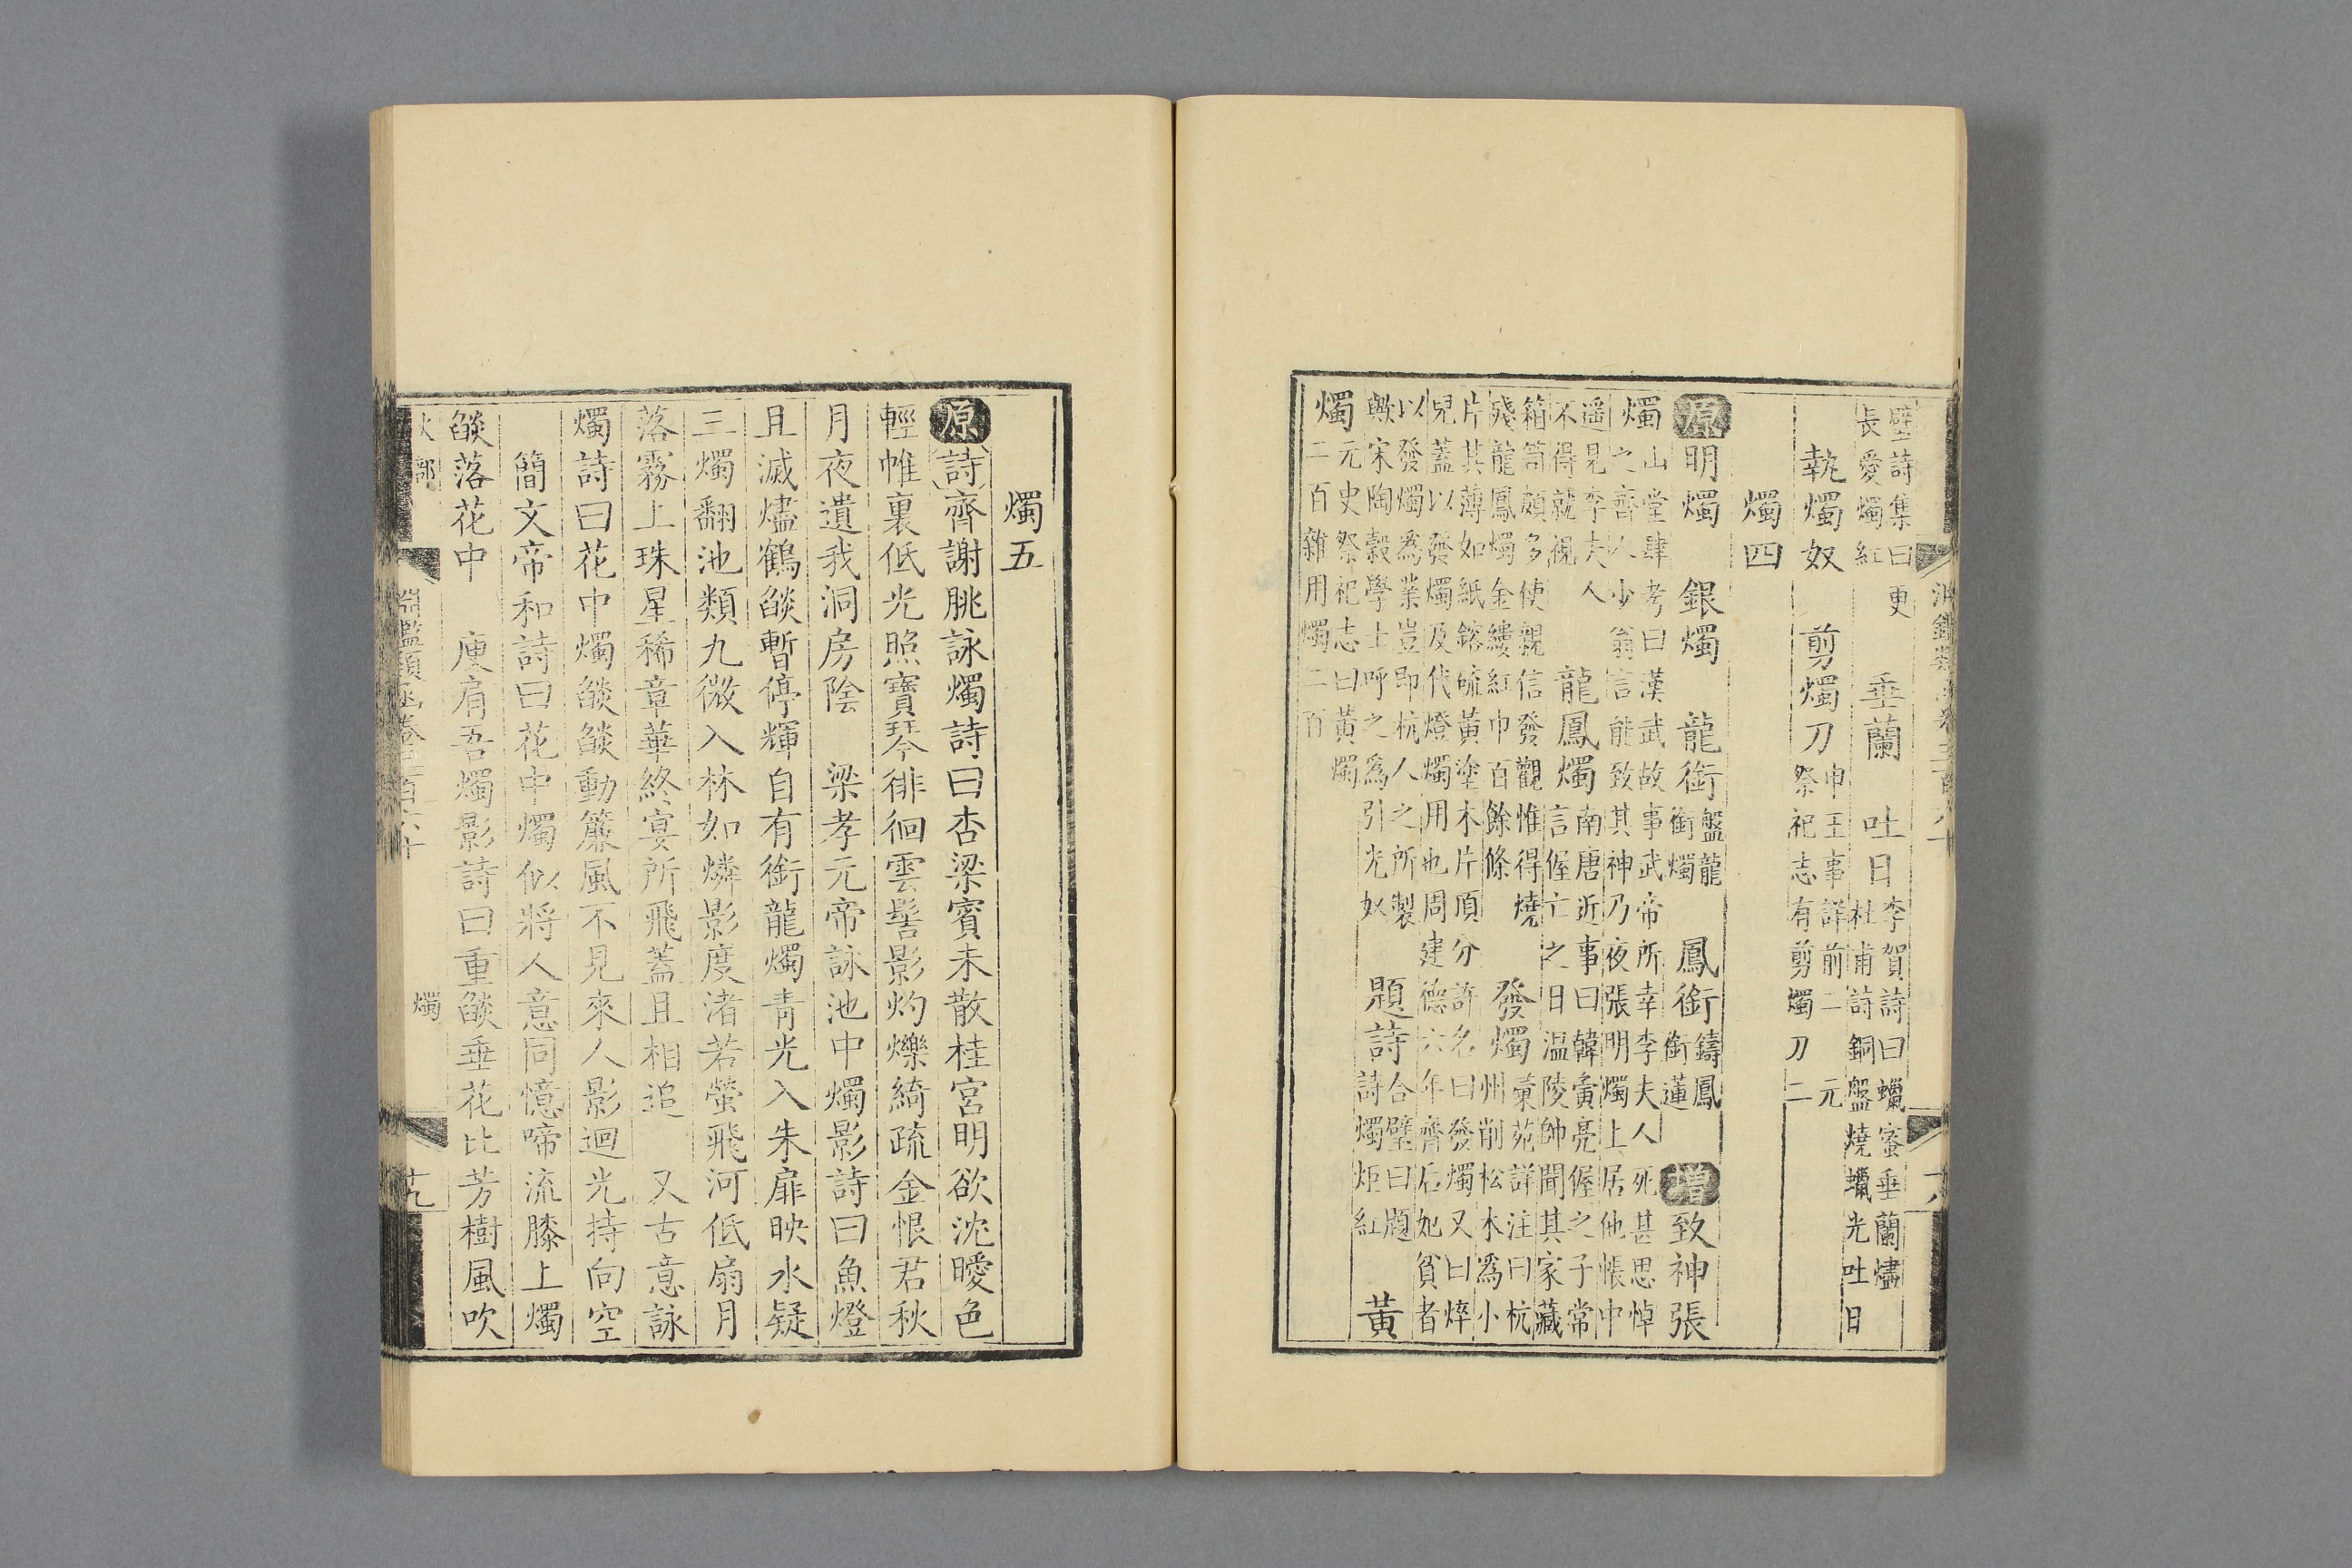 璧詩集曰更長愛燭紅　垂蘭　吐日李賀詩曰蠟蜜垂蘭燼杜甫詩銅盤燒蠟光吐日
執燭奴　剪燭刀申王事詳前二　元祭祀志有剪燭刀二
燭四
原明燭　銀燭　龍銜盤龍銜燭　鳳銜鑄鳳銜蓮　增致神張
燭山堂肆考曰漢武故事武帝所幸李夫人死甚思悼之齊人少翁言能致其神乃夜張明燭上居他帳中
遥見李夫人不得就視　龍鳳燭南唐近事曰韓夤亮偓之子常言偓亡之日溫陵帥聞其家藏
箱笥頗多使親信發觀惟得燒殘龍鳳燭金縷紅巾百餘條　發燭藁苑詳注曰杭州削松木爲小
片其薄如紙鎔硫黃塗木片頂分許名曰發燭又曰焠兒蓋以發燭及代燈燭用也周建德六年齊后妃貧者
以發燭爲業豈即杭人之所製歟宋陶穀學士呼之爲引光奴　題詩合璧曰題詩燭炬紅　黃
燭元史祭祀志曰黃燭二百雜用燭二百
燭五
原詩齊謝朓詠燭詩曰杏梁賓未散桂宮明欲沈曖色
輕帷裏低光照寶琴徘徊雲髻影灼爍綺疏金恨君秋
月夜遺我洞房陰　梁孝元帝詠池中燭影詩曰魚燈
且滅燼鶴燄暫停輝自有銜龍燭青光入朱扉映水疑
三燭翻池類九微入林如燐影度渚若螢飛河低扇月
落霧上珠星稀章華終宴所飛蓋且相追　又古意詠
燭詩曰花中燭燄燄動簾風不見來人影迴光持向空
簡文帝和詩曰花中燭似將人意同憶啼流膝上燭
燄落花中　庾肩吾燭影詩曰重燄垂花比芳樹風吹
火部　淵鑑類函卷三百六十　燭　十九